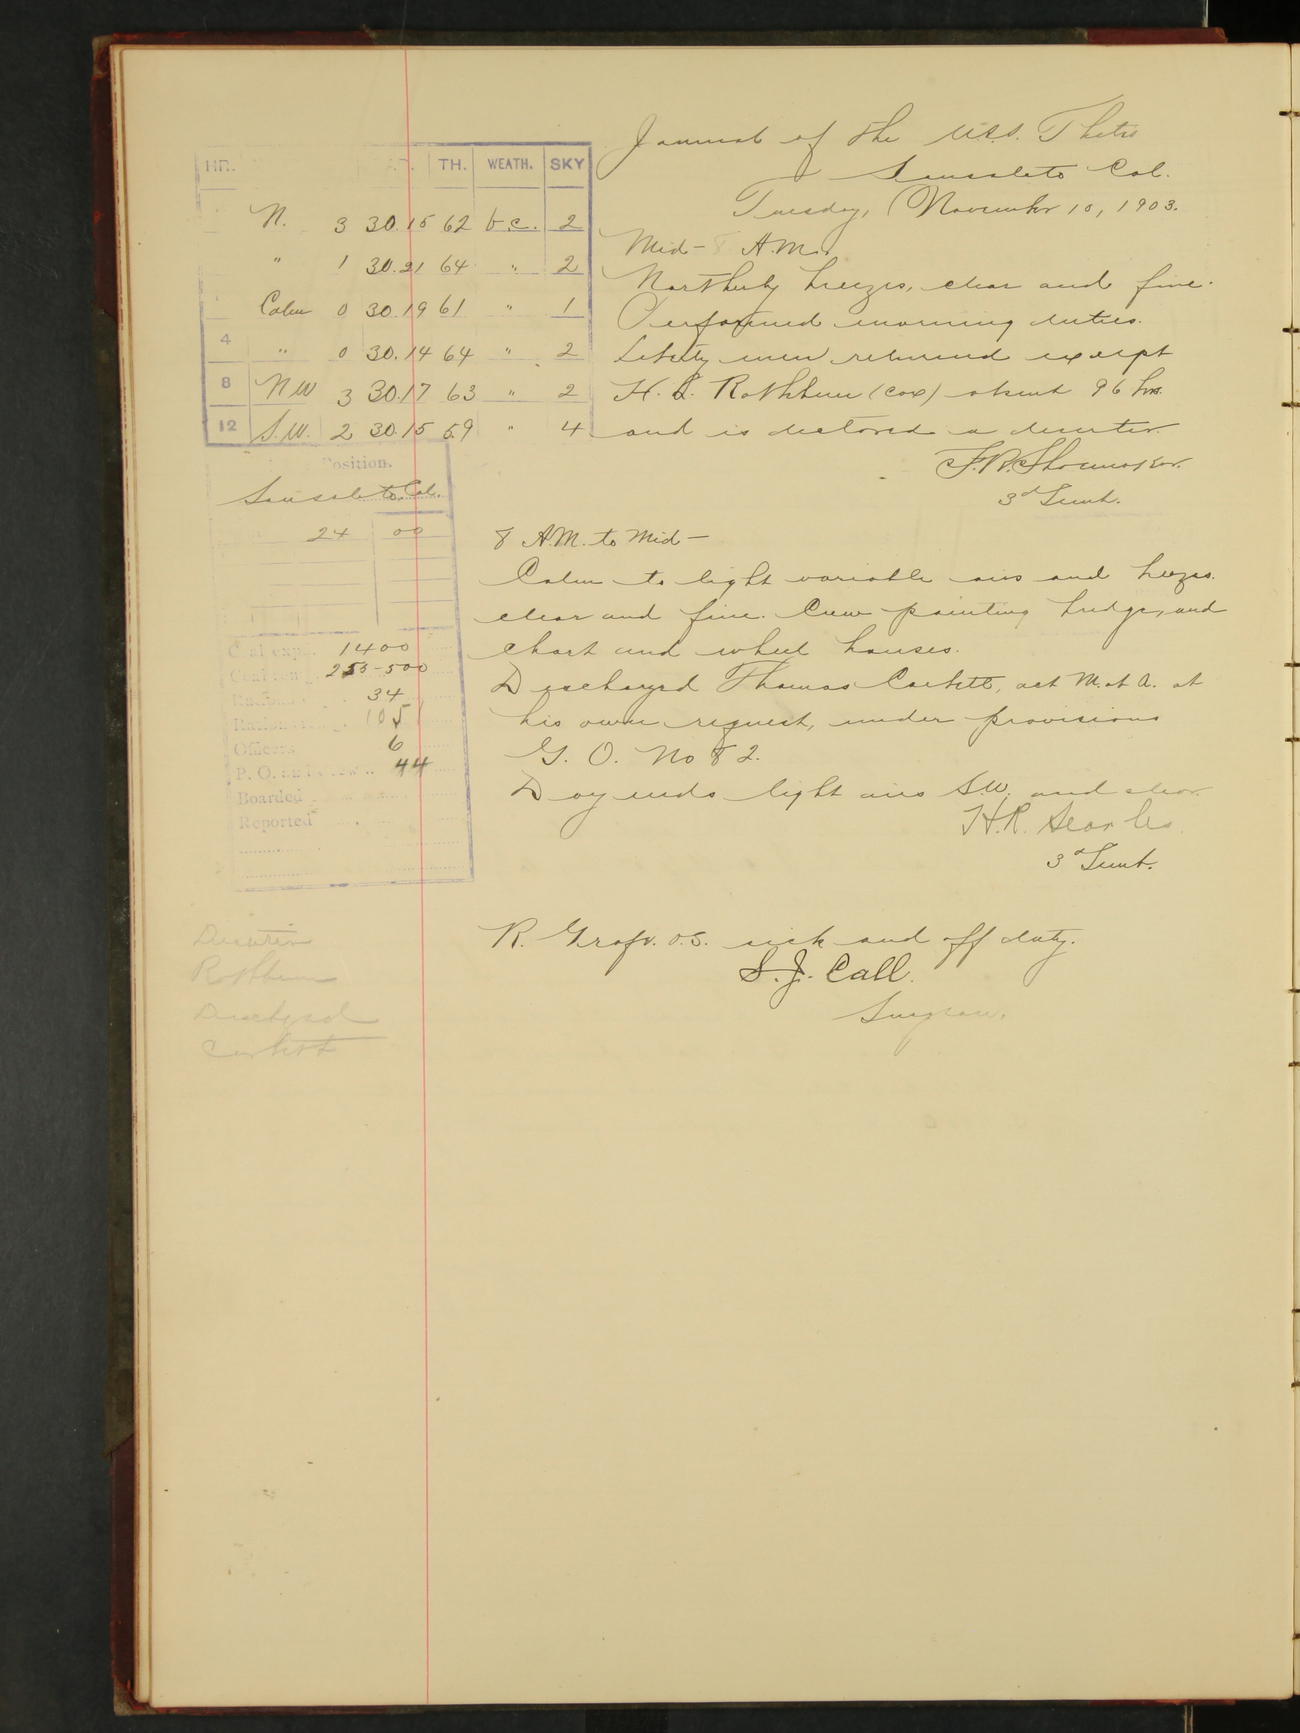 Journal of the U.S.S. Thetis
Sausalito Cal.
Tuesday, November 10, 1903.
HR. TH. WEATH. SKY
N. 3 30.15 62 b.c. 2
" 1 30.21 64 " 2
Calm 0 30.19 61 " 1
4 " 0 30.14 64 " 2
8 NW 3 30.17 63 " 2
12 S.W. 2 30.15 59 " 4
Position.
Sausalito Cal.
24 00
Coal exp. 1400
Coal 253-500
34
Rations 105
Officers 6
P. O. and crew 44
Boarded
Reported
Desertion
Rothburn
Discharged
Corbett
Mid - 8 A.M.
Northerly breezes, clear and fine.
Performed morning duties.
Liberty men returned except
H. S. Rothburn (cox) absent 96 hrs.
and is declared a deserter.
F.R. Shoemaker.
3d Lieut.
8 A.M. to Mid -
Calm to light variable airs and breezes.
clear and fine. Crew painting bridge, and
chart and wheel houses.
Discharged Thomas Corbett, act M. at A. at
his own request, under provisions
G. O. No 82.
Day ends light airs S.W. and clear.
H.R. Searles
3d Lieut.
R. Graf. O.S. sick and off duty.
S. J. Call.
Surgeon.